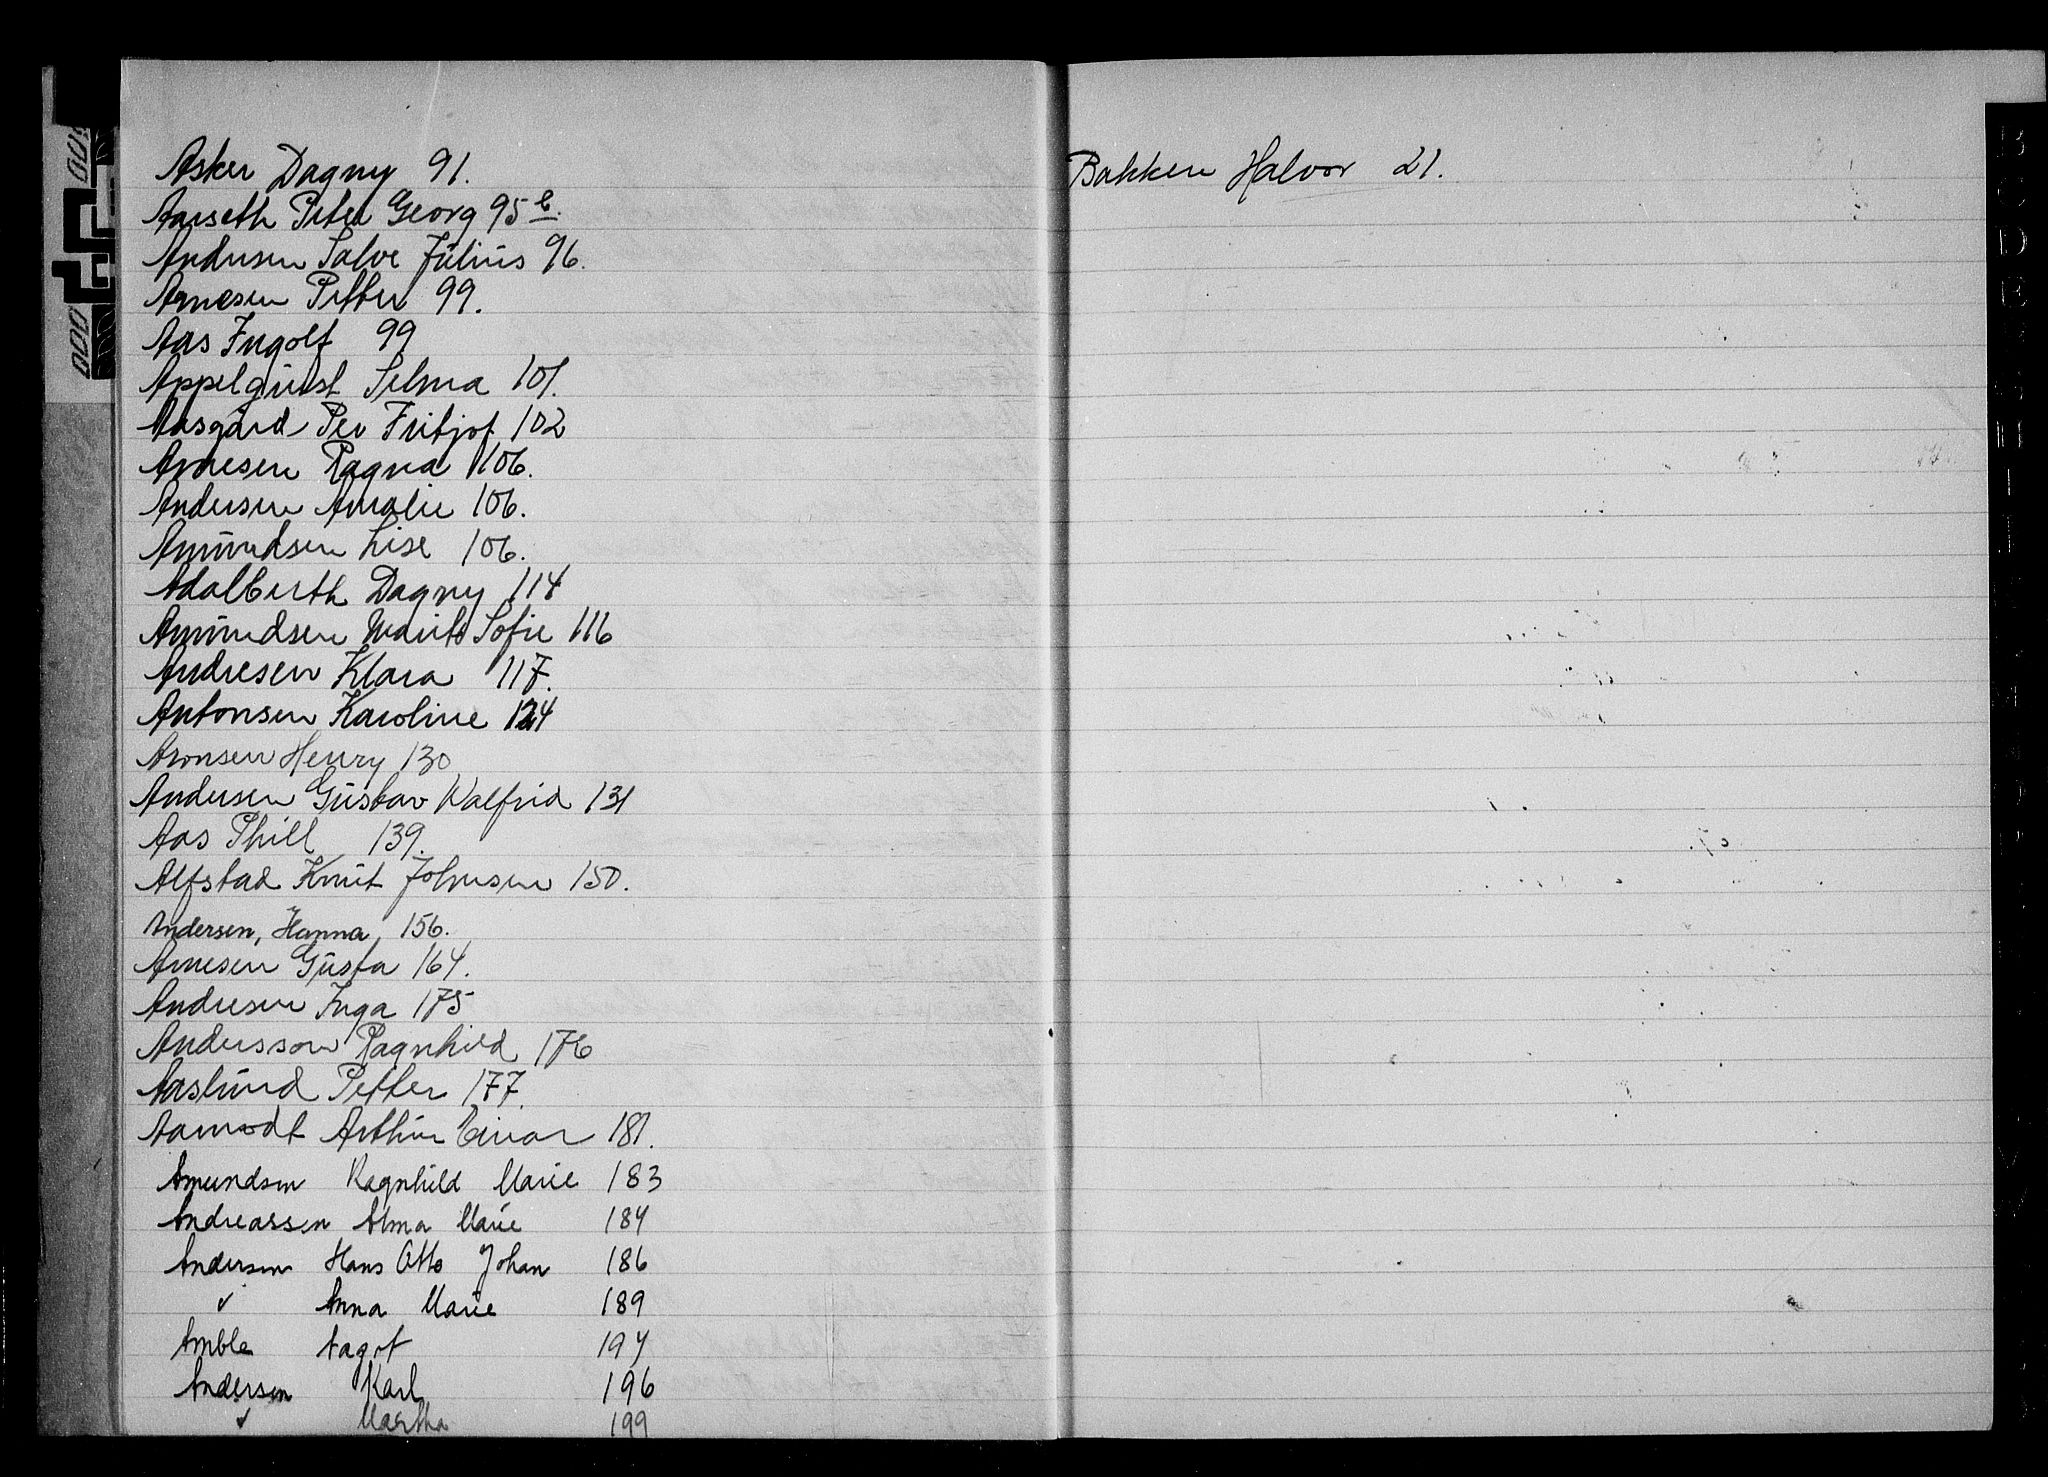 Asker Dagny 91.
Aarseth Peter Georg 95 b.
Andersen Salve Julius 96.
Arnesen Petter 99.
Aas Ingolf 99
Appelquist Selma 101.
Aasgård Per Fritjof 102
Arnesen Ragna 106.
Andersen Amalie 106.
Amundsen Lise 106.
Adalberth Dagny 114
Amundsen Sofie 116
Andresen Klara 117.
Antonsen Karoline 124
Aronsen Henry 130
Andersen Gustav Walfrid 131
Aas Phill 139.
Alfstad Knut Johnsen 150.
Andersen, Hanna 156.
Arnesen Gusta 164.
Andresen Inga 175
Andersson Ragnhild 176
Aaslund Petter 177.
Aamodt Arthur Einar 181.
Amundsen Ragnhild Marie 183
Andreassen Alma Marie 184
Andersen Hans Otto Johan 186
✓ Anna Marie 189
Amble Aagot 194
Andersen Karl 196
✓ Martha 199
Bakken Halvor 21.